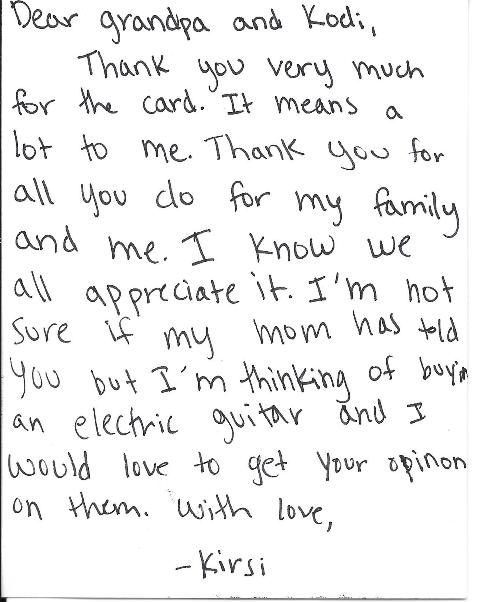 Dear grandpa and Kodi,
Thank you very much
for the card. It means a
lot to me. Thank you for
all you do for my family
and me. I know we
all appreciate it. I'm not
sure if my mom has told
you but I'm thinking of buyin
an electric guitar and I
would love to get your opinon
on them. With love,
-Kirsi